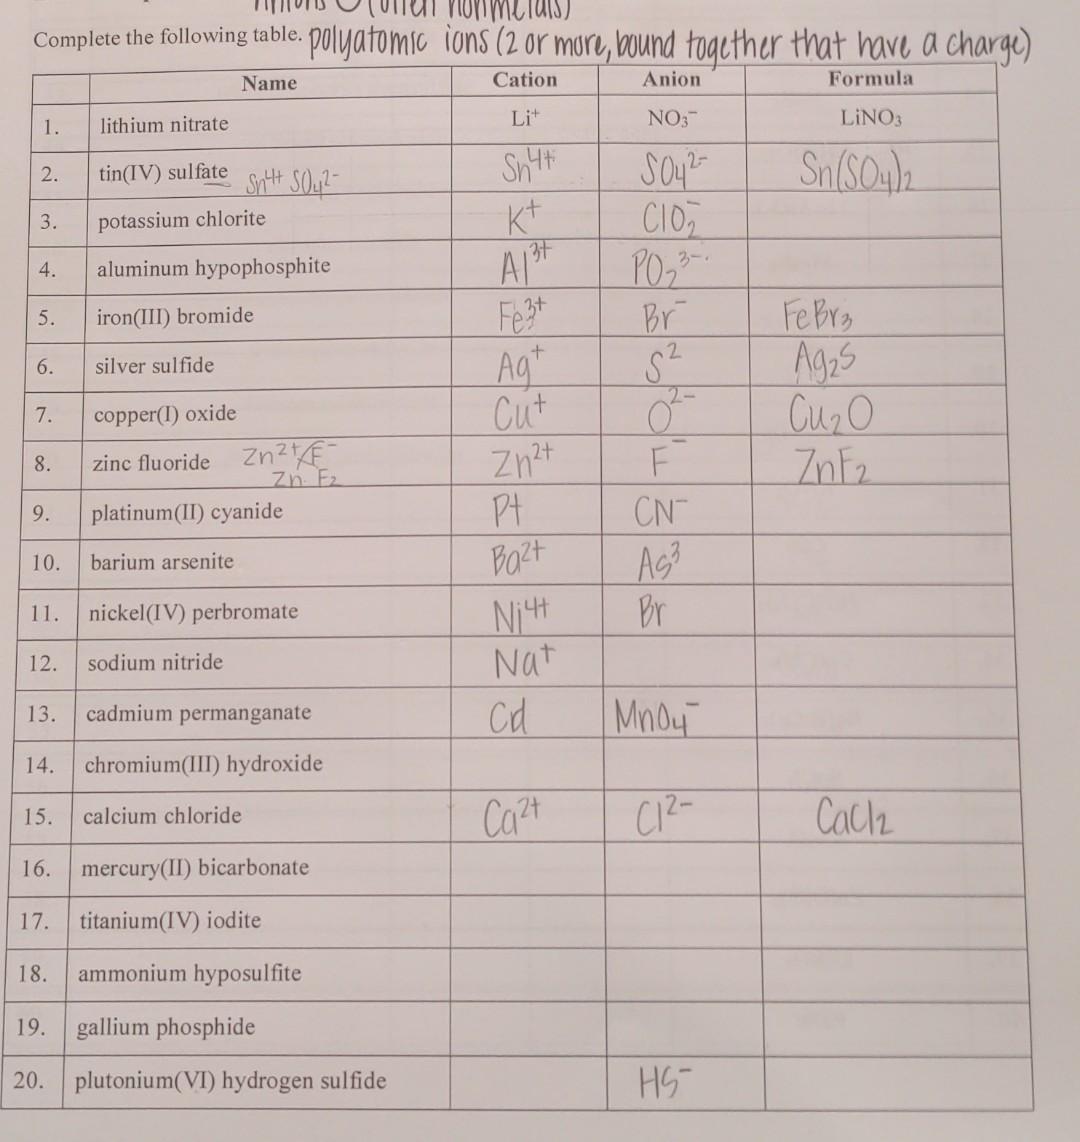 (often nonmetals)
Complete the following table. polyatomic ions (2 or more, bound together that have a charge)
Name Cation Anion Formula
1. lithium nitrate Li⁺ NO₃⁻ LiNO₃
2. tin(IV) sulfate Sn⁴⁺ SO₄²⁻ Sn⁴⁺ SO₄²⁻ Sn(SO₄)₂
3. potassium chlorite K⁺ ClO₂⁻
4. aluminum hypophosphite Al³⁺ PO₂³⁻
5. iron(III) bromide Fe³⁺ Br⁻ FeBr₃
6. silver sulfide Ag⁺ S² Ag₂S
7. copper(I) oxide Cu⁺ O²⁻ Cu₂O
8. zinc fluoride Zn²⁺ F⁻ Zn²⁺ F⁻ ZnF₂
Zn F₂
9. platinum(II) cyanide Pt CN⁻
10. barium arsenite Ba²⁺ As³
11. nickel(IV) perbromate Ni⁴⁺ Br
12. sodium nitride Na⁺
13. cadmium permanganate Cd MnO₄⁻
14. chromium(III) hydroxide
15. calcium chloride Ca²⁺ Cl²⁻ CaCl₂
16. mercury(II) bicarbonate
17. titanium(IV) iodite
18. ammonium hyposulfite
19. gallium phosphide
20. plutonium(VI) hydrogen sulfide HS⁻